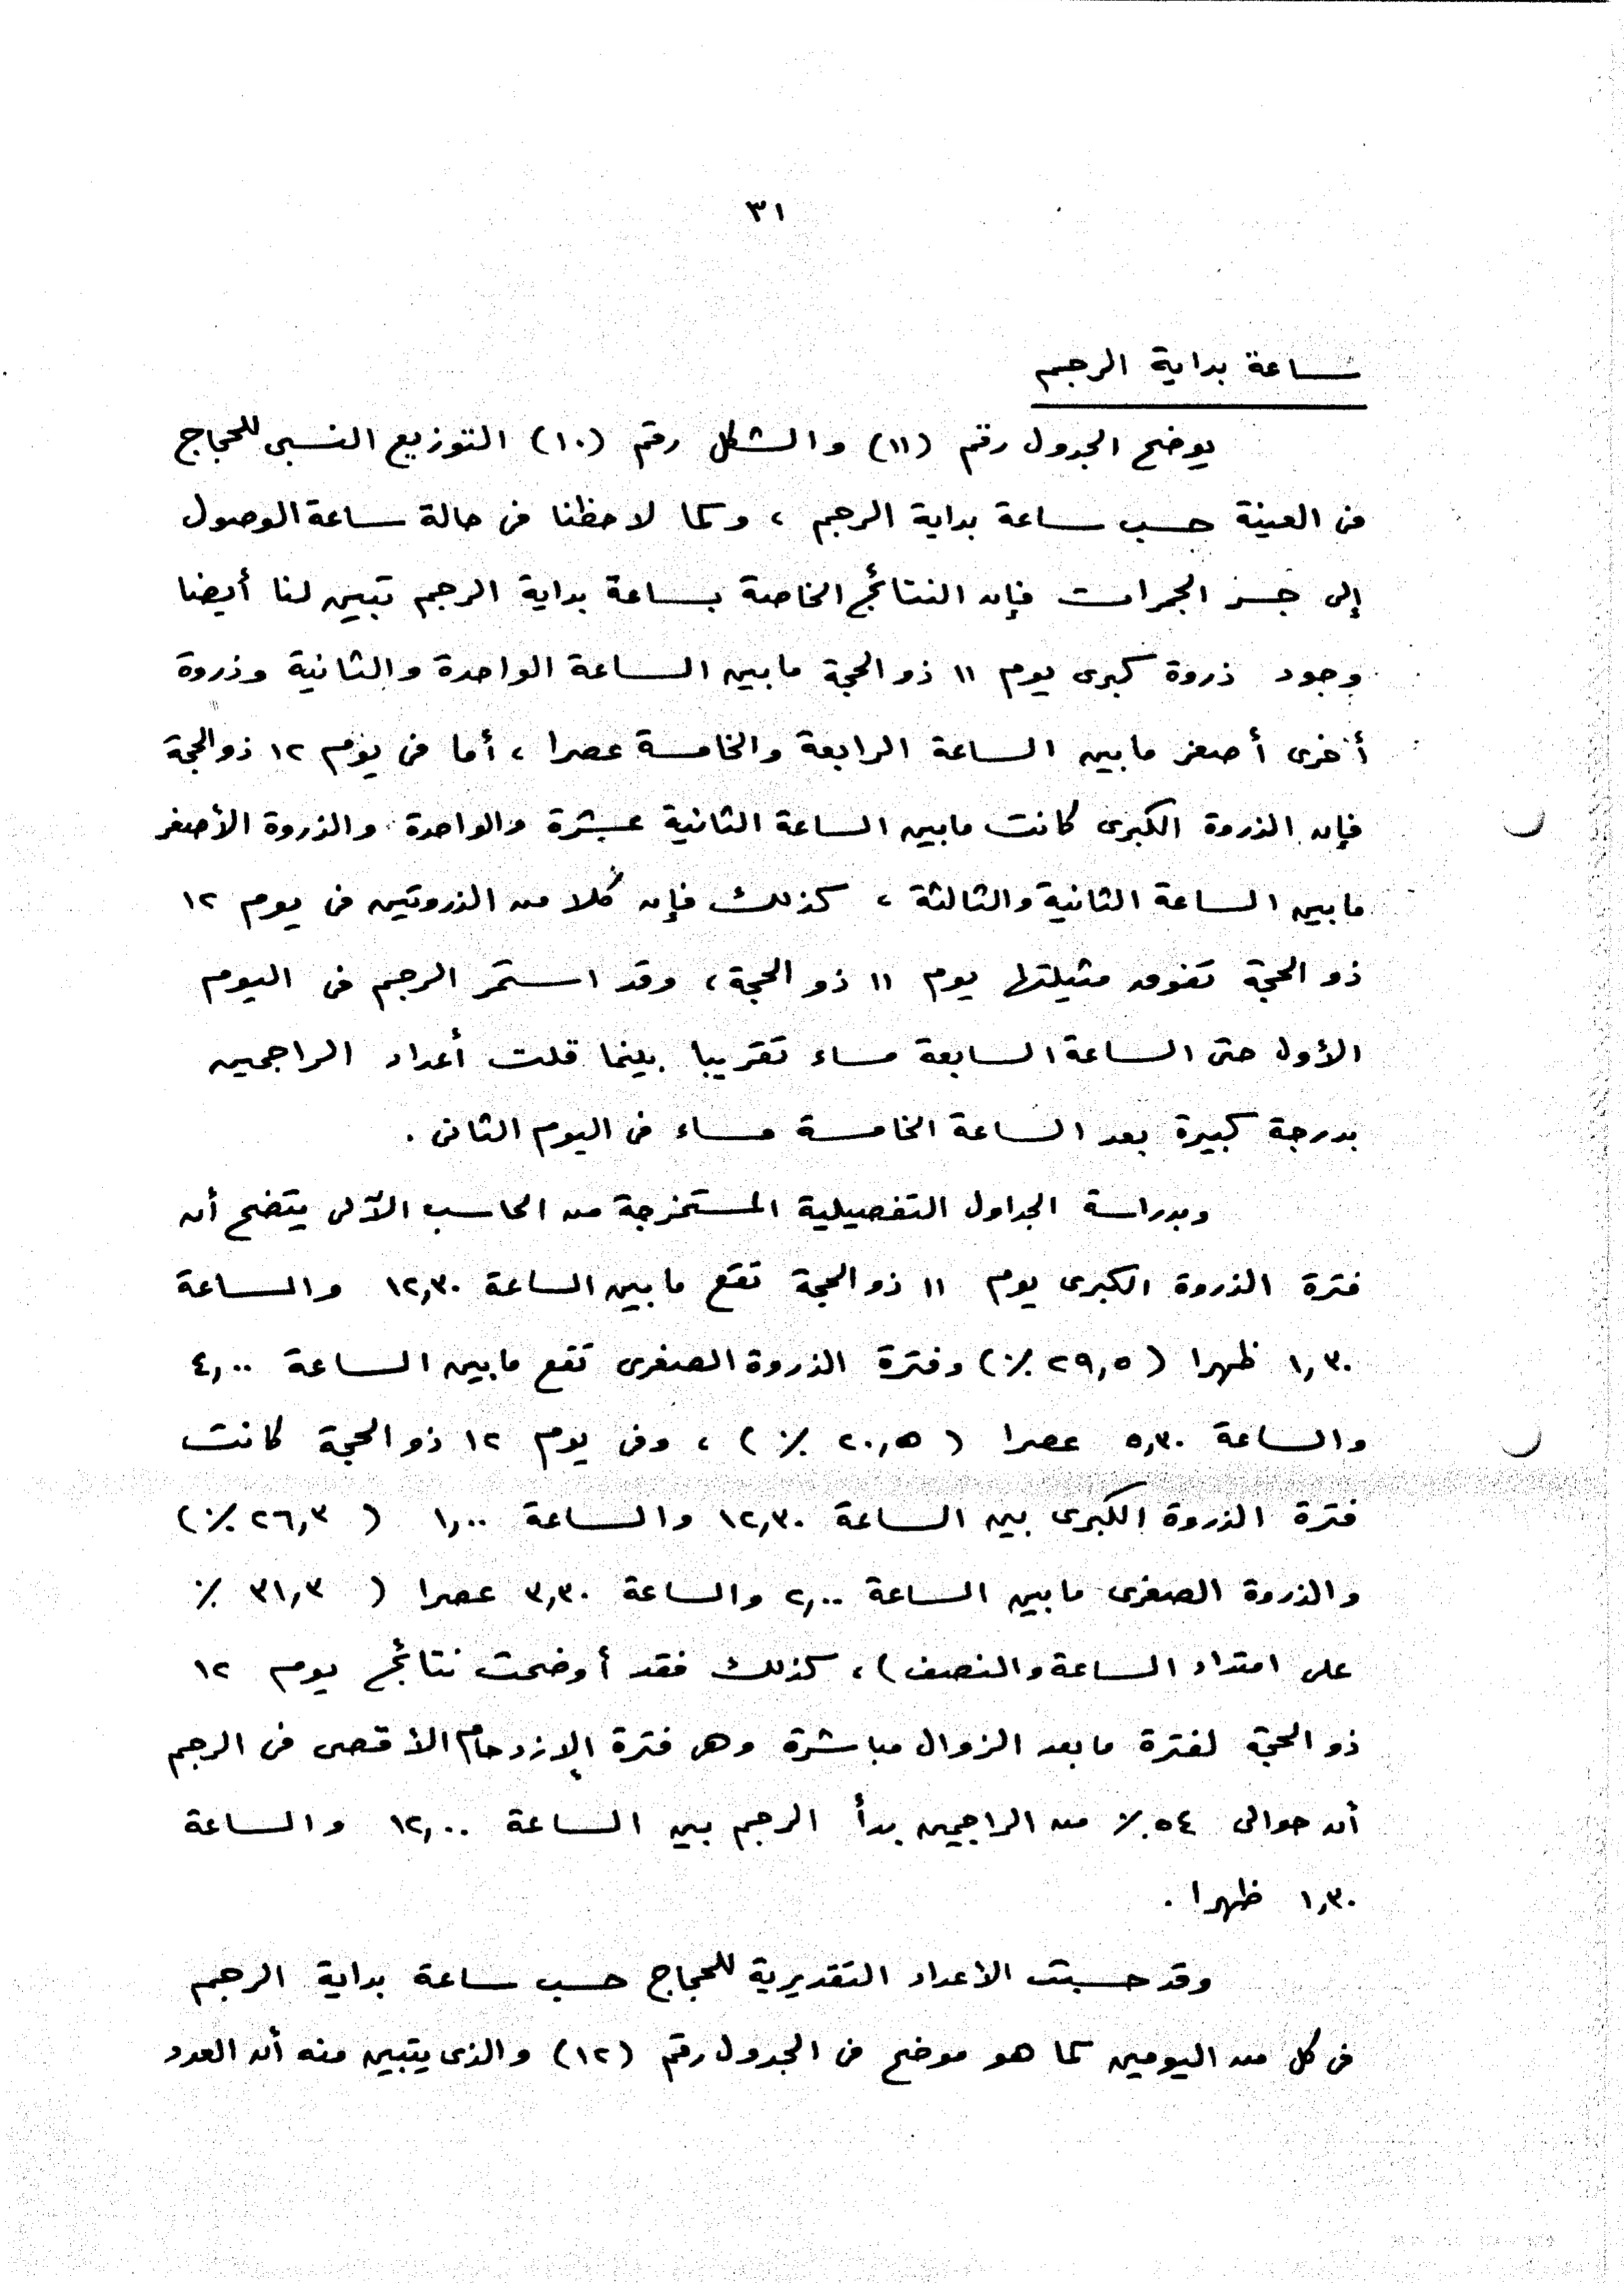 ٣١
ساعة بداية الرجم
يوضح الجدول رقم (١١) والشكل رقم (١٠) التوزيع النسبى للحجاج
فى العينة حسب ساعة بداية الرجم ، وكما لاحظنا فى حالة ساعة الوصول
إلى جسر الجمرات فإن النتائج الخاصة بساعة بداية الرجم تبين لنا أيضا
وجود ذروة كبرى يوم ١١ ذو الحجة مابين الساعة الواحدة والثانية وذروة
أخرى أصغر مابين الساعة الرابعة والخامسة عصرا ، أما فى يوم ١٢ ذو الحجة
فإن الذروة الكبرى كانت مابين الساعة الثانية عشرة والواحدة والذروة الأصغر
مابين الساعة الثانية والثالثة ، كذلك فإن كلا من الذروتين فى يوم ١٢
ذو الحجة تفوق مثيلتها يوم ١١ ذو الحجة ، وقد استمر الرجم فى اليوم
الأول حتى الساعة السابعة مساء تقريبا بينما قلت أعداد الراجمين
بدرجة كبيرة بعد الساعة الخامسة مساء فى اليوم الثانى .
وبدراسة الجداول التفصيلية المستخرجة من الحاسب الآلى يتضح أن
فترة الذروة الكبرى يوم ١١ ذو الحجة تقع مابين الساعة ١٢,٣٠ والساعة
١,٣٠ ظهرا ( ٢٩,٥ ٪) وفترة الذروة الصغرى تقع مابين الساعة ٤,٠٠
والساعة ٥,٣٠ عصرا ( ٢٠,٥ ٪ ) ، وفى يوم ١٢ ذو الحجة كانت
فترة الذروة الكبرى بين الساعة ١٢,٣٠ والساعة ١,٠٠ ( ٢٦,٣ ٪)
والذروة الصغرى مابين الساعة ٢,٠٠ والساعة ٣,٣٠ عصرا ( ٣١,٣ ٪
على امتداد الساعة والنصف) ، كذلك فقد أوضحت نتائج يوم ١٢
ذو الحجة لفترة مابعد الزوال مباشرة وهى فترة الازدحام الأقصى فى الرجم
أن حوالى ٥٤ ٪ من الراجمين بدأ الرجم بين الساعة ١٢,٠٠ والساعة
١,٣٠ ظهرا .
وقد حسبت الأعداد التقديرية للحجاج حسب ساعة بداية الرجم
فى كل من اليومين كما هو موضح فى الجدول رقم (١٢) والذى يتبين منه أن العدد